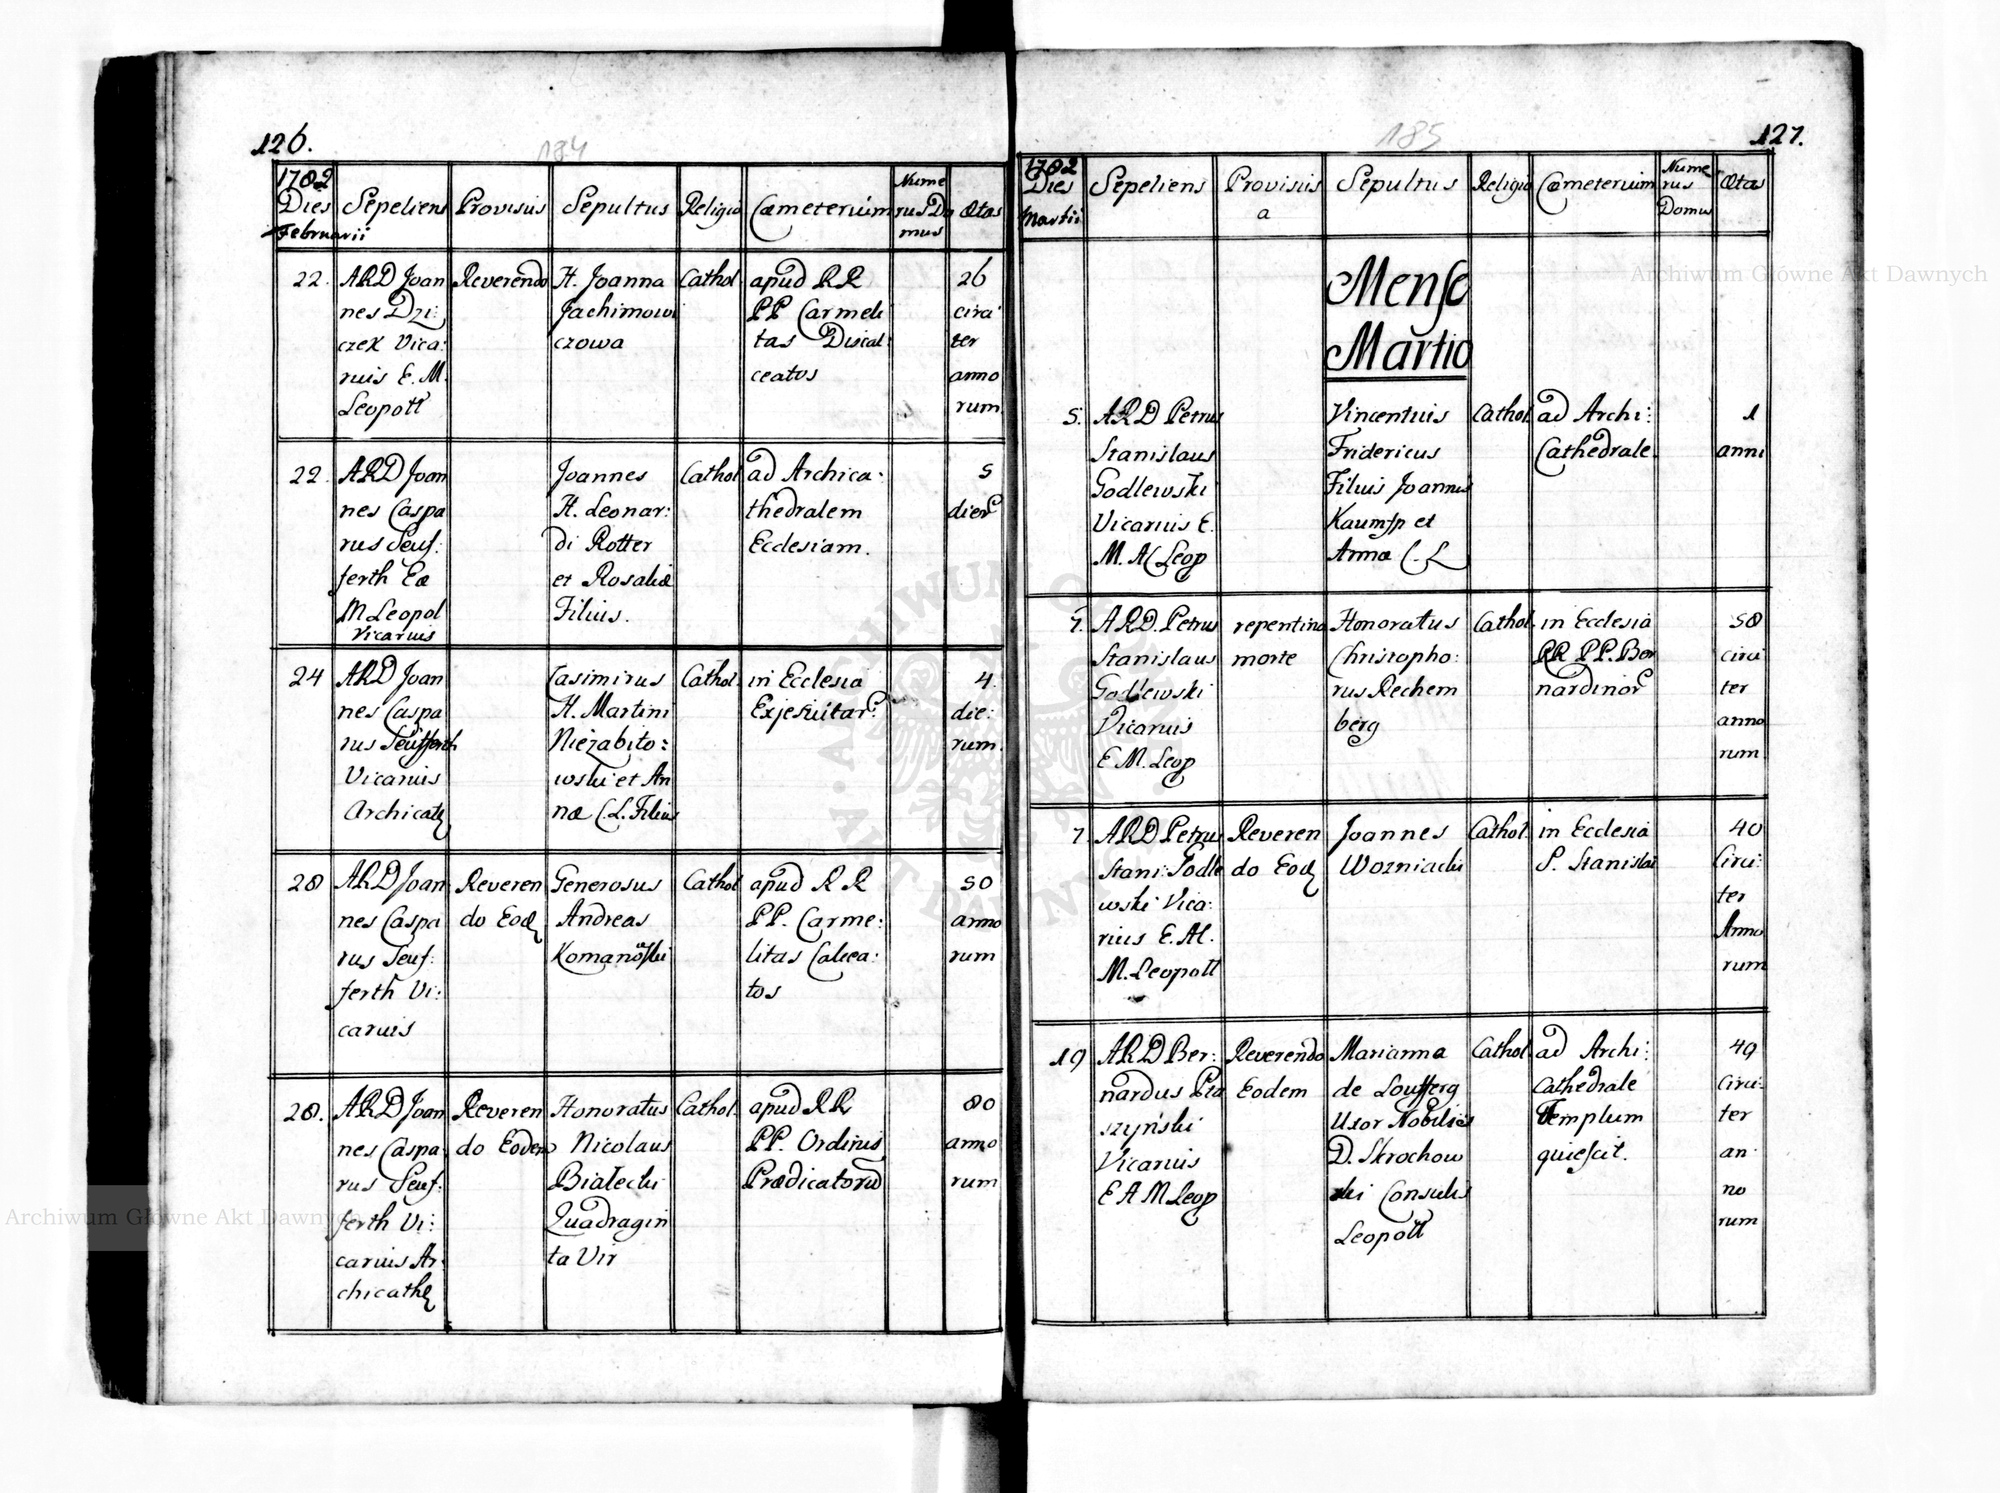 126.
184
1782
Dies
Februarii
Sepeliens
Provisus
Sepultus
Religio
Cœmeterium
Nume
rus Do
mus
Ætas
22.
ARD Joan
nes Dzi:
czek Vica:
rius E. M.
Leopoll
Reverendo
H. Joanna
Jachimowi
czowa
Cathol
apud RR
PP Carmeli
tas Discal:
ceatos
26
circi
ter
anno
rum
22.
ARD Joan
nes Caspa
rus Seuf:
ferth Eæ
M Leopol
Vicarius
Joannes
H. Leonar:
di Rotter
et Rosaliæ
Filius.
Cathol
ad Archica:
thedralem
Ecclesiam.
5
dier
24
ARD Joan
nes Caspa
rus Seufferth
Vicarius
Archicath
Casimirus
H. Martini
Niezabito:
wski et An
næ C. L. Filius
Cathol.
in Ecclesia
Exjesuitar:
4.
die:
rum.
28
ARD Joan
nes Caspa
rus Seuf:
ferth Vi:
carius
Reveren
do Eod
Generosus
Andreas
Komanoski
Cathol
apud RR
PP. Carme:
litas Calcea:
tos
50
anno
rum
28.
ARD Joan
nes Caspa
rus Seuf:
ferth Vi:
carius Ar
chicath
Reveren
do Eodem
Honoratus
Nicolaus
Białecki
Quadragin
ta Vir
Cathol.
apud RR
PP. Ordinis
Prædicatorū
80
anno
rum
127.
185
1782
Dies
Martii
Sepeliens
Provisus
a
Sepultus
Religio
Cœmeterium
Nume
rus
Domus
Ætas
Mense
Martio
5.
ARD Petrus
Stanislaus
Godlewski
Vicarius E.
M. AC Leop
Vincentius
Fridericus
Filius Joannis
et
Annæ C. L
Cathol.
ad Archi:
Cathedrale.
1
anni
7.
ARD. Petrus
Stanislaus
Godlewski
Vicarius
E M. Leop
repentina
morte
Honoratus
Christopho:
rus Rechem
berg
Cathol.
in Ecclesia
RR PP. Ber
nardinor
58
circi
ter
anno
rum
7
ARD Petrus
Stani: Godle
wski Vica:
rius E. AC.
M. Leopoll
Reveren
do Eod
Joannes
Wozniacki
Cathol.
in Ecclesia
S. Stanislai
40
Circi:
ter
Anno
rum
19
ARD Ber:
nardus Pta
szyński
Vicarius
E A M Leop
Reverendo
Eodem
Marianna
de
Uxor Nobilis
D. Skrochow
ski Consulis
Leopoll
Cathol
ad Archi:
Cathedrale
Templum
quiescit.
49
Circi:
ter
an:
no
rum
Archiwum Główne Akt Dawnych
Archiwum Główne Akt Dawnych
ARCHIWUM GŁÓWNE AKT DAWNYCH